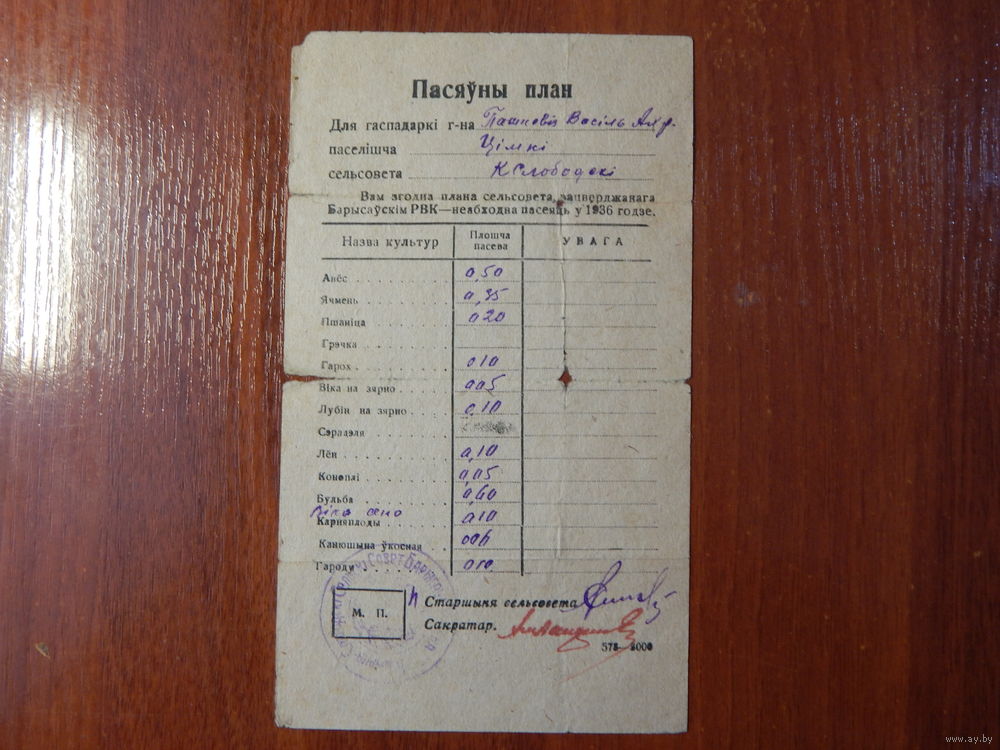 Пасяўны план
Для гаспадаркі г-на Пашкевіч Васіль
паселішча Цімкі
сельсовета К Слободскі
Вам згодна плана сельсовета, зацверджанага
Барысаўскім РВК—неабходна пасеяць у 1936 годзе.
Назва культур Плошча пасева УВАГА
Авёс 0,50
Ячмень 0,35
Пшаніца 0,20
Грэчка
Гарох 0,10
Віка на зярно 0,05
Лубін на зярно 0,10
Сэрадэля
Лён 0,10
Коноплі 0,05
Бульба 0,60
Віка сено
Карняплоды 0,10
Канюшына ўкосная
Гароди 0,10
М. П.
Старшыня сельсовета
Сакратар.
578—3000
www.ay.by